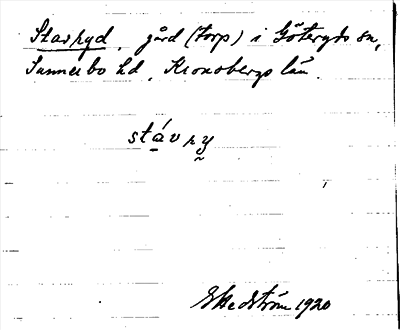 Stavryd, gård (torp) i Göteryds sn,
Sunnerbo hd, Kronobergs län.
stávry
G Hedström 1920